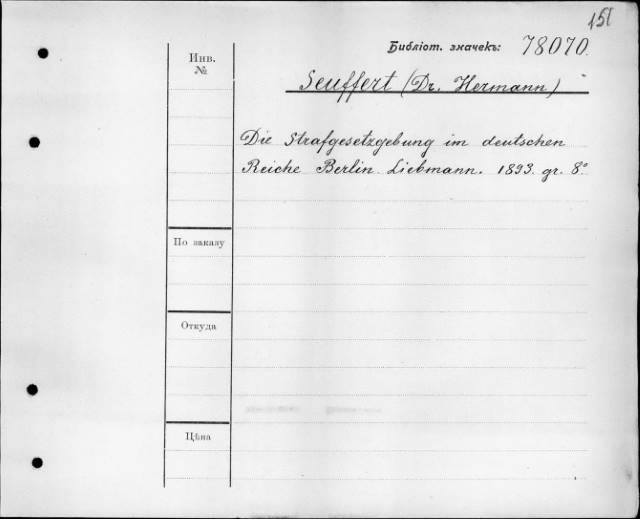 151
Библіот. значекъ: 78070.
Инв.
№
Seuffert (Dr. Hermann)
Die Strafgesetzgebung im deutschen
Reiche Berlin Liebmann. 1893. gr. 8°
По заказу
Откуда
Цѣна